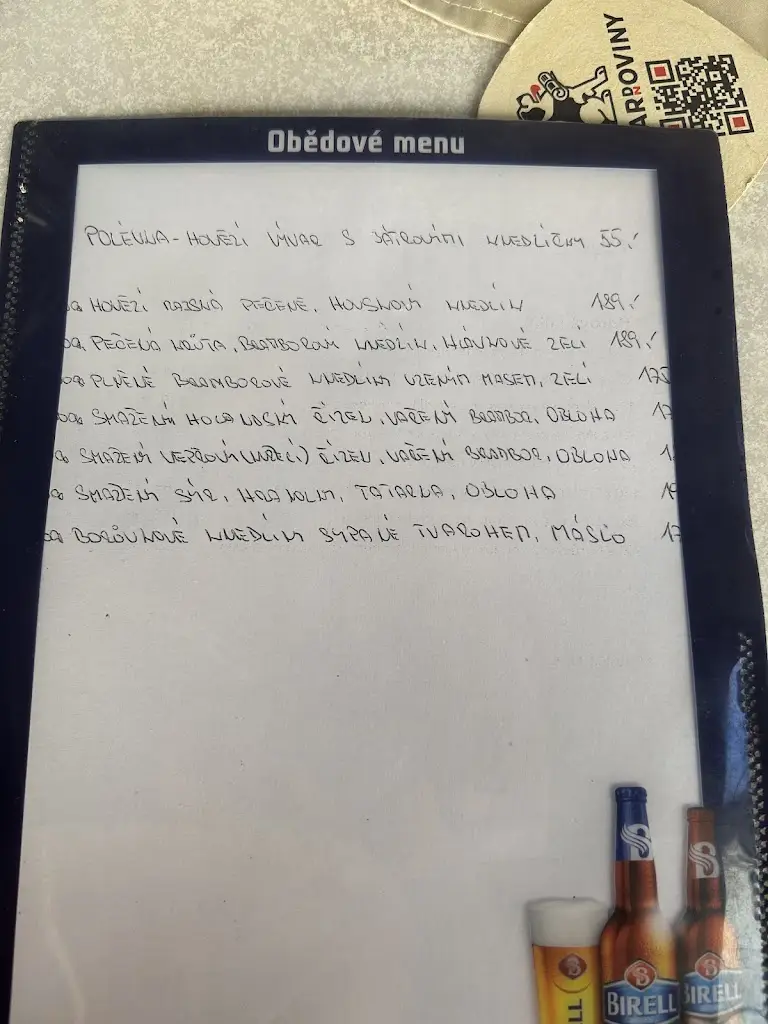 ARDOVINY
N
Obědové menu
POLÉVKA - HOVĚZÍ VÝVAR S JÁTROVÝMI KNEDLÍČKY 55,-
HOVĚZÍ RAJSKÁ PEČENĚ, HOUSKOVÝ KNEDLÍK 189,-
PEČENÁ KRŮTA, BRAMBOROVÝ KNEDLÍK, HLÁVKOVÉ ZELÍ 189,-
PLNĚNÉ BRAMBOROVÉ KNEDLÍKY UZENÝM MASEM, ZELÍ 175
SMAŽENÝ HOLANDSKÝ ŘÍZEK, VAŘENÝ BRAMBOR, OBLOHA 17
SMAŽENÝ VEPŘOVÝ (KUŘECÍ) ŘÍZEK, VAŘENÝ BRAMBOR, OBLOHA 1
SMAŽENÝ SÝR, HRANOLKY, TATARKA, OBLOHA
BORŮVKOVÉ KNEDLÍKY SYPANÉ TVAROHEM, MÁSLO 17
BIRELL BIRELL
LL